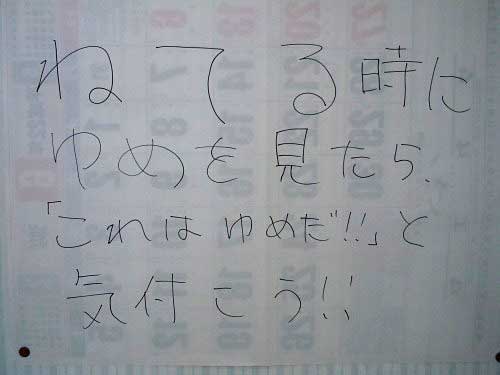 ねてる時に
ゆめを見たら、
「これはゆめだ!!」と
気付こう!!